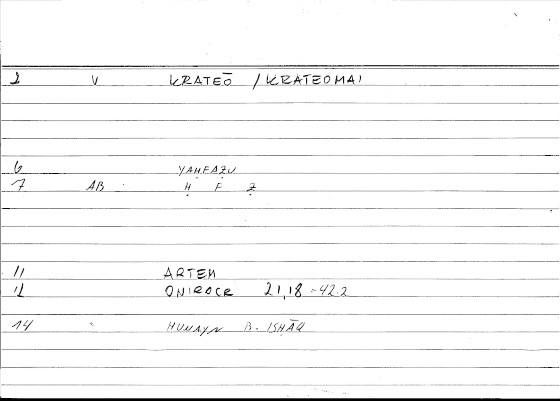 1 V KRATEŌ / KRATEOMAI
6 YAḤFAẒU
7 AB Ḥ F Ẓ
11 ARTEM
12 ONIROCR 21,18 = 42.2
14 HUNAYN B. ISḤĀQ